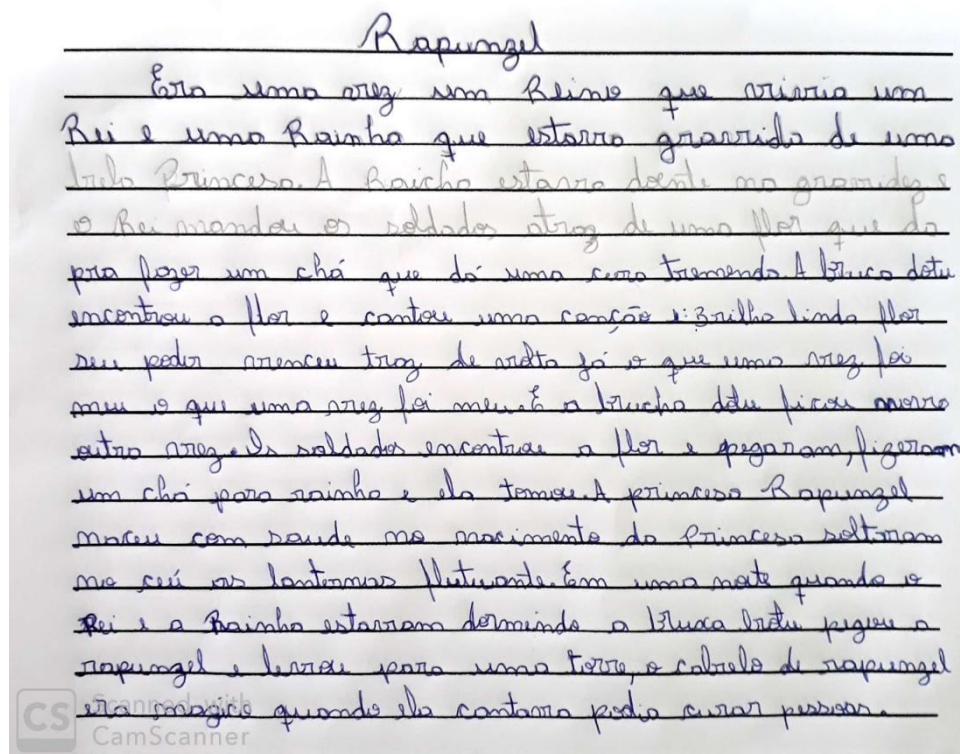 Rapunzel
Era uma vez um Reino que vivia um
Rei e uma Rainha que estava gravida de uma
bela Princesa. A Raicha estava doente na gravidez e
o Rei mandou os soldados atraz de uma flor que da
pra fazer um chá que dá uma cura tremenda. A bruca dotu
encontrou a flor e cantou uma canção: Brilha linda flor
seu poder venceu traz de volta já o que uma vez foi
meu o que uma vez foi meu. E a brucha dotu ficou novva
outra vez. Os soldados encontrou a flor e pegaram, fizeram
um chá para rainha e ela tomou. A princesa Rapunzel
naceu com saude no nacimento da Princesa soltaram
no ceú as lantornas flutuante. Em uma noite quando o
Rei e a Rainha estavam dormindo a bruxa botu pegou a
rapunzel e levou para uma torre, o cabelo de rapunzel
era magico quando ela cantava podia curar pessoas.
CS Scanned with
CamScanner